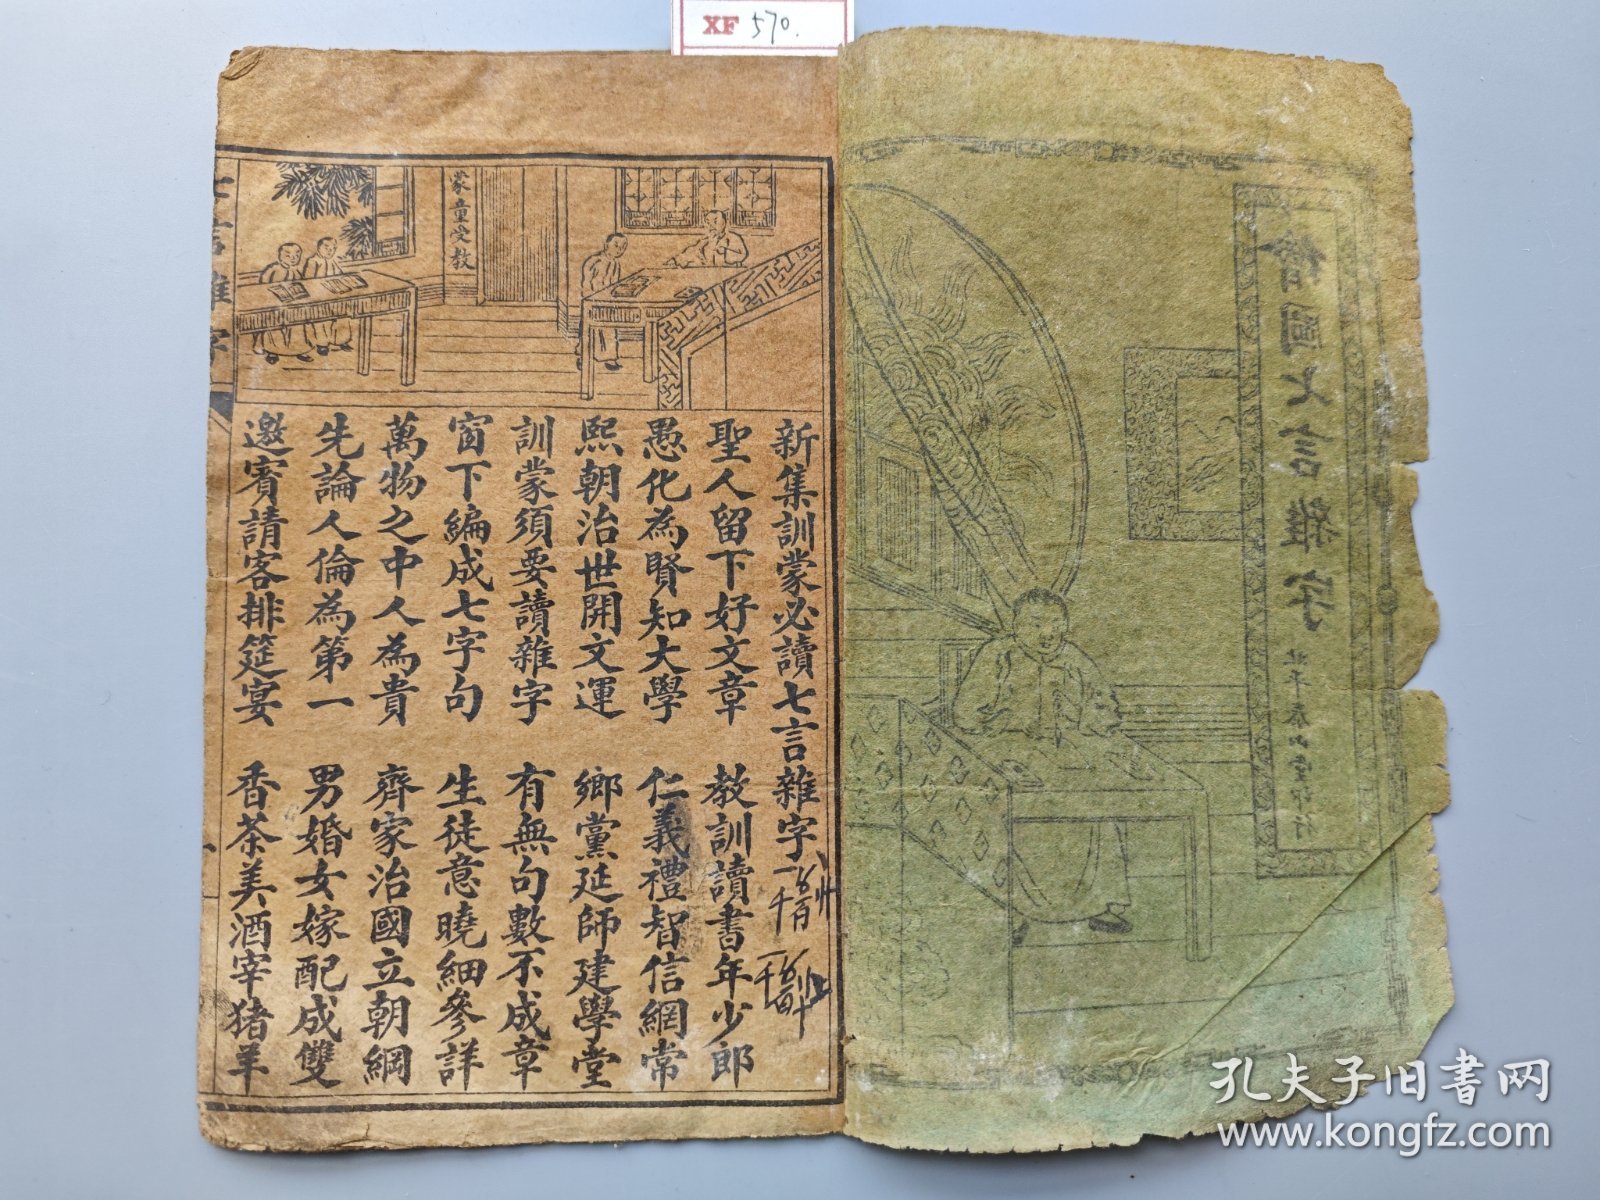 XF 570.
繪圖七言雜字
蒙童受教
新集訓蒙必讀七言雜字
聖人留下好文章 教訓讀書年少郎
愚化為賢知大學 仁義禮智信網常
熙朝治世開文運 鄉黨延師建學堂
訓蒙須要讀雜字 有無句數不成章
窗下編成七字句 生徒意曉細參詳
萬物之中人為貴 齊家治國立朝綱
先論人倫為第一 男婚女嫁配成雙
邀賓請客排筵宴 香茶美酒宰猪羊
七言雜字
一
孔夫子旧书网
www.kongfz.com